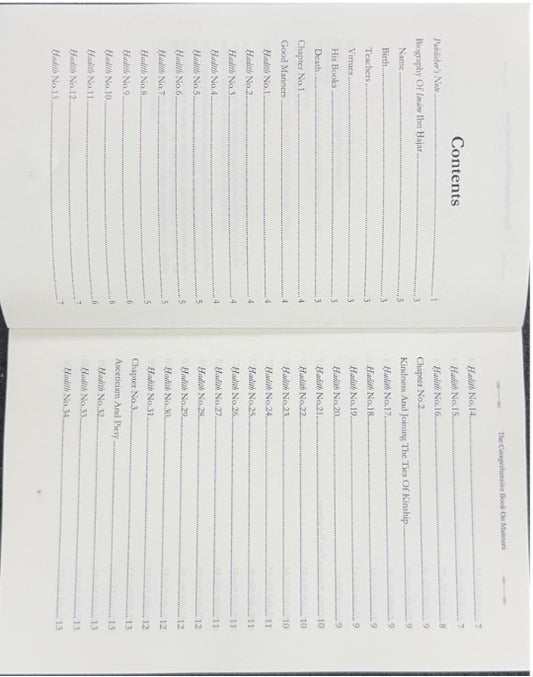 Contents
Publisher's Note 1
Biography Of Imam Ibn Hajar 3
Name 3
Birth 3
Teachers 3
Virtues 3
His Books 3
Death 3
Chapter No.1 4
Good Manners 4
Hadith No.1 4
Hadith No.2 4
Hadith No.3 4
Hadith No.4 4
Hadith No.5 5
Hadith No.6 5
Hadith No.7 5
Hadith No.8 5
Hadith No.9 6
Hadith No.10 6
Hadith No.11 6
Hadith No.12 7
Hadith No.13 7
The Comprehensive Book On Manners
Hadith No.14 7
Hadith No.15 7
Hadith No.16 8
Chapter No.2 9
Kindness And Joining The Ties Of Kinship 9
Hadith No.17 9
Hadith No.18 9
Hadith No.19 9
Hadith No.20 9
Hadith No.21 10
Hadith No.22 10
Hadith No.23 10
Hadith No.24 11
Hadith No.25 11
Hadith No.26 11
Hadith No.27 11
Hadith No.28 12
Hadith No.29 12
Hadith No.30 12
Hadith No.31 12
Chapter No.3 13
Asceticism And Piety 13
Hadith No.32 13
Hadith No.33 13
Hadith No.34 13
v